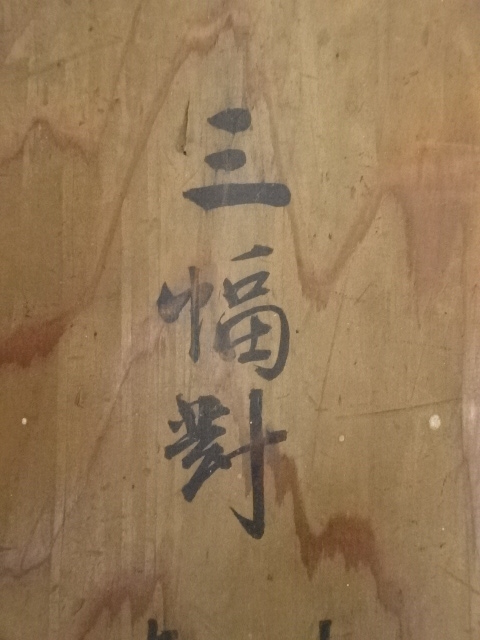 三幅對